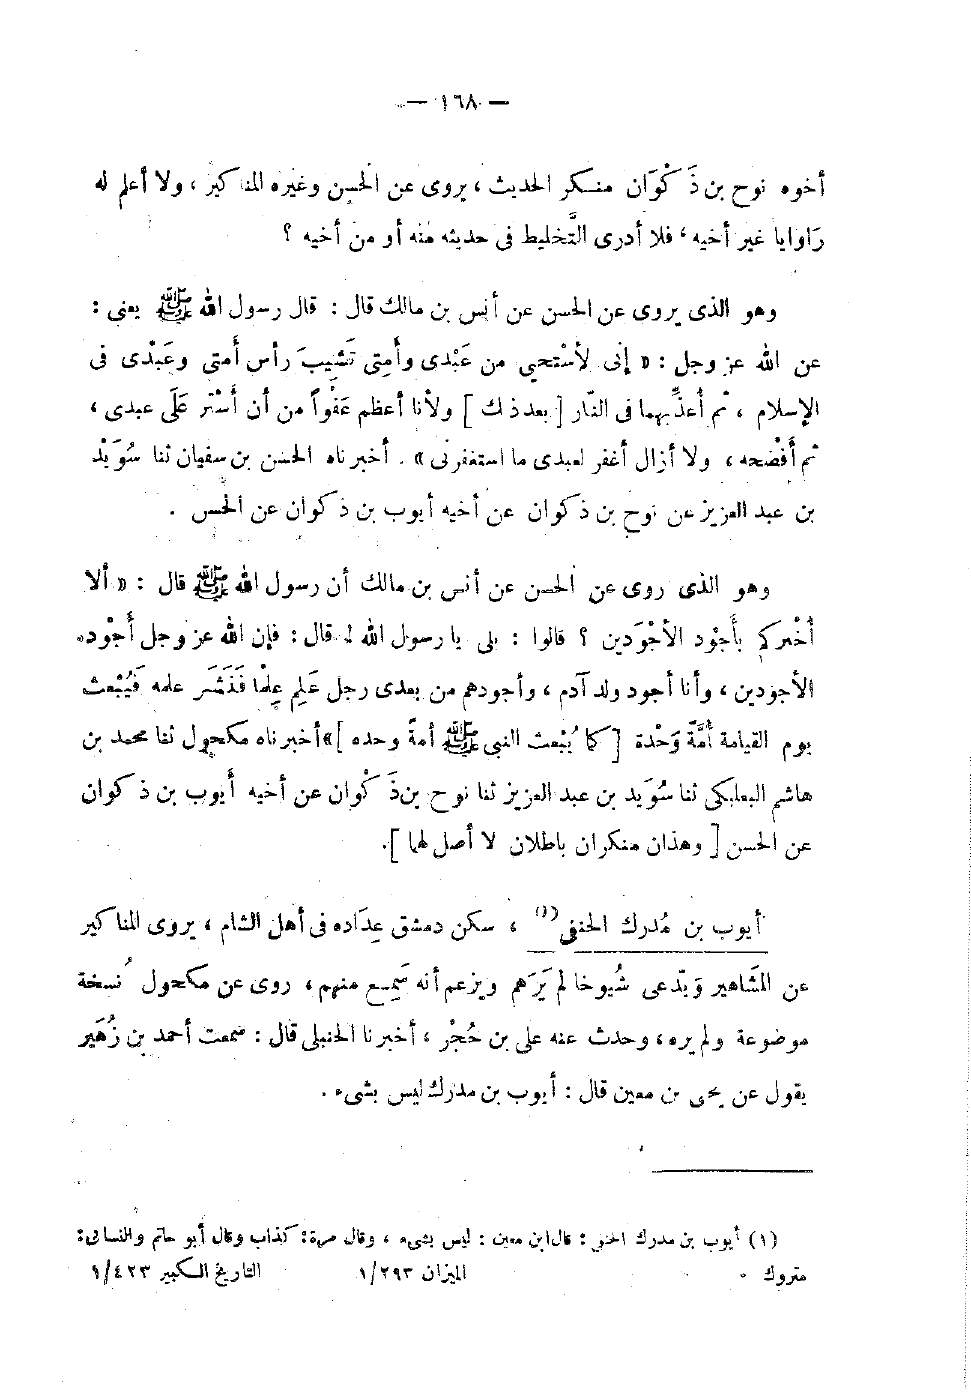 — ١٦٨ —
أخوه نوح بن ذَكْوَان منكر الحديث ، يروى عن الحسن وغيره المناكير ، ولا أعلم له
رَاوايا غير أخيه ، فلا أدرى التَّخليط فى حديثه منه أو من أخيه ؟
وهو الذى يروى عن الحسن عن أنس بن مالك قال : قال رسول الله ﷺ يعنى :
عن الله عز وجل : « إنى لأسْتحيى من عَبْدى وأمتِى تَشِيبَ رأس أمتى وعَبْدى فى
الإسلام ، ثم أعذِّبهما فى النّار [ بعد ذلك ] ولأنا أعظم عَفْواً من أن أسْتر عَلَى عبدى ،
ثم أَفْضحه ، ولا أزال أغفر لعبدى ما استغفرنى » . أخبرناه الحسن بن سفيان ثنا سُوَيْد
بن عبد العزيز عن نوح بن ذكوان عن أخيه أيوب بن ذكوان عن الحسن .
وهو الذى روى عن الحسن عن أنس بن مالك أن رسول الله ﷺ قال : « ألا
أُخْبركم بأَجْود الأجْوَدين ؟ قالوا : بلى يا رسول الله قال : فإن الله عز وجل أجْوده
الأجودين ، وأنا أجود ولد آدم ، وأجودهم من بعدى رجل عَلِم عِلْماً فَذَشَر علمه فَيُبْعث
يوم القيامة أمَّة وَحْدة [ كما يُبْعث النبى ﷺ أمةً وحده ] » أخبرناه مكحول ثنا محمد بن
هاشم البعلبكى ثنا سُوَيد بن عبد العزيز ثنا نوح بن ذَكْوان عن أخيه أيوب بن ذكوان
عن الحسن [ وهذان منكران باطلان لا أصل لهما ] .
أيوب بن مُدرك الحنفى (١) ، سكن دمشق عِدَاده فى أهل الشام ، يروى المناكير
عن المشَاهير وَيدّعى شُيوخا لم يَرَهم ويزعم أنه سَمِع منهم ، روى عن مكحول نُسخة
موضوعة ولم يره ، وحدث عنه على بن حُجْر ، أخبرنا الحنبلى قال : سمعت أحمد بن زُهَير
يقول عن يحيى بن معين قال : أيوب بن مدرك ليس بشىء .
(١) أيوب بن مدرك الحنفى : قال ابن معين : ليس بشىء ، وقال مرة : كذاب وقال أبو حاتم والنسائى :
متروك . الميزان ١/٢٩٣ التاريخ الكبير ١/٤٢٣